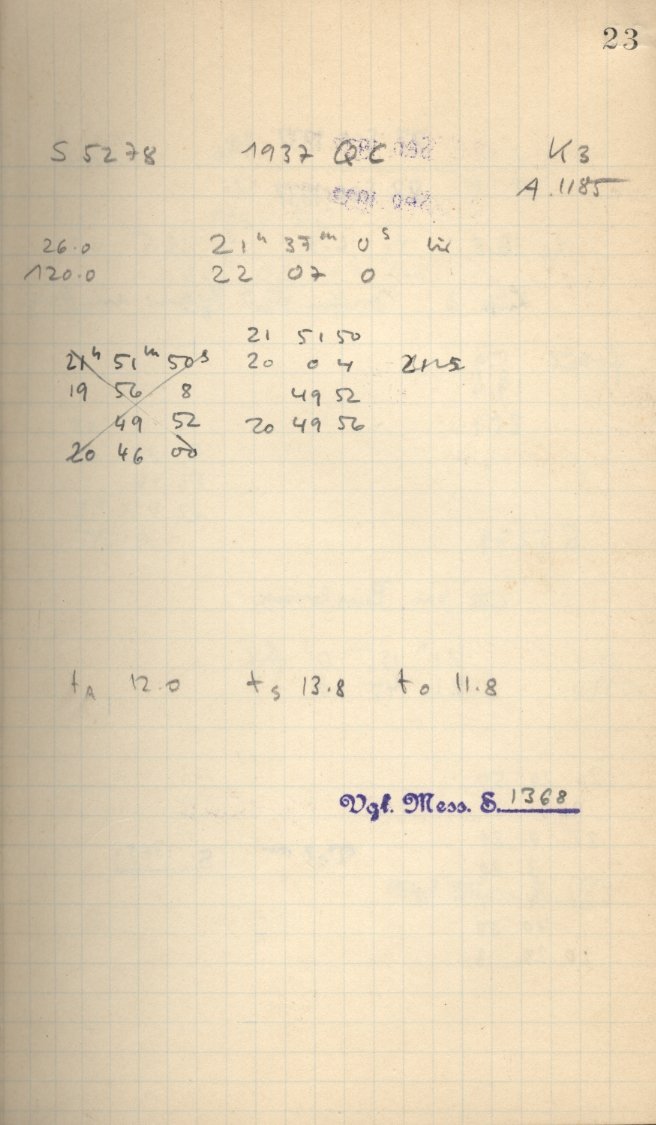 23
S 5278 1937 QC K3
A.1185
26.0 21h 37m 0s
120.0 22 07 0
21 51 50
21h 51m 50s 20 0 4
19 56 8 49 52
49 52 20 49 56
20 46 00
tA 12.0 tS 13.8 t0 11.8
Vgl. Mess. S. 1368